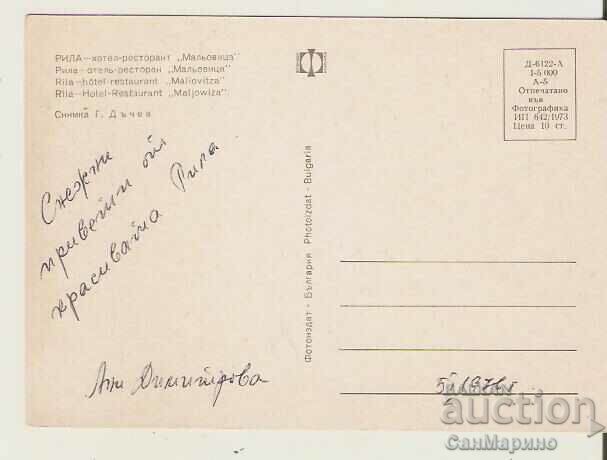 РИЛА—хотел-ресторант „Мальовица"
Рила—отель-ресторан „Мальовица"
Rila—hôtel-restaurant „Maliovitza"
Rila—Hotel-Restaurant „Maljowiza"
Снимка Г. Дъчев
Д-6122-А
1-5 000
А-5
Отпечатано
във
Фотографика
ИП 642/1973
Цена 10 ст.
Снежни
привети от
красивата Рила
Ани Димитрова
Фотоиздат - България Photoizdat - Bulgaria
auction
СанМарино